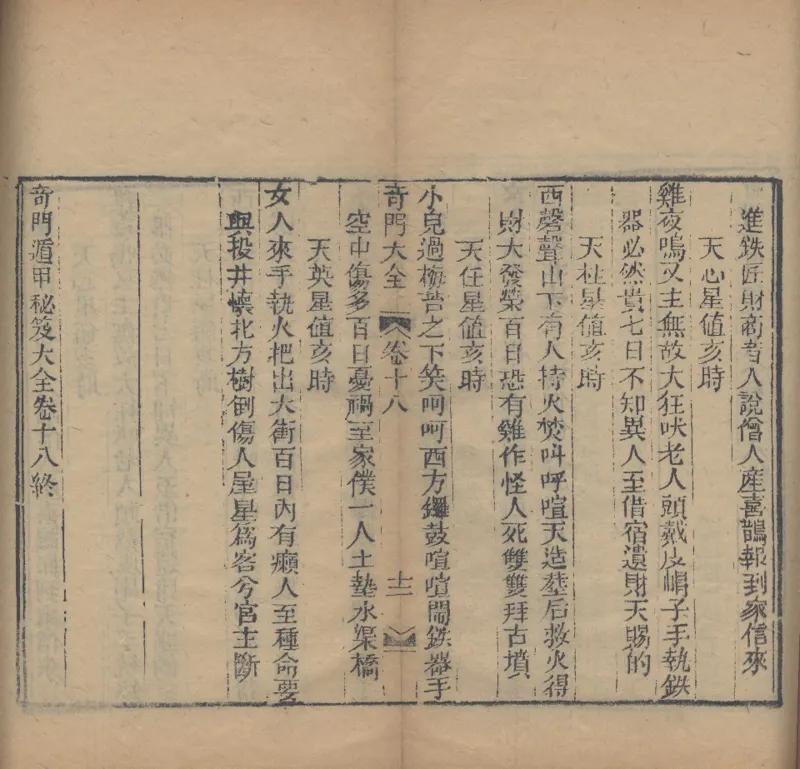 進鉄匠財商音人說僧人産喜鵲報到家信來
天心星値亥時
雞夜鳴又主無故犬狂吠老人頭戴皮帽子手執鉄
器必然貴七日不知異人至借宿遺財天賜的
天柱星値亥時
西磬聲山下有人持火焚叫呼喧天造塟后救火得
財大發榮百日恐有雞作怪人死雙雙拜古墳
天任星値亥時
小皃過梅菩之下笑呵呵西方鑼鼓喧喧閙鉄器手
奇門大全 卷十八 十二
空中傷多百日憂禍至家僕一人土墊水渠橋
天英星値亥時
女人來手執火把出大街百日内有癩人至種命要
與投井懷北方樹倒傷人是星爲客兮官主斷
奇門遁甲秘笈大全卷十八終